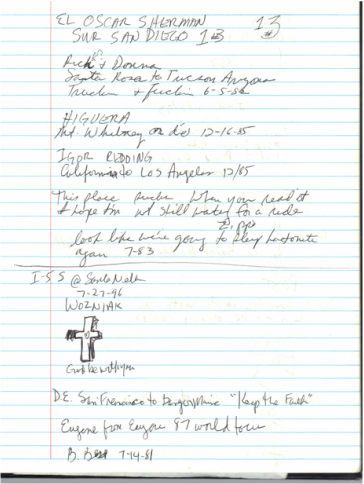 EL OSCAR SHERMAN 13
SUR SAN DIEGO 13
Rick & Donna
Santa Rosa to Tucson Arizona
Truckin + 6-5-86
HIGUERA
Mt. Whitney or die 12-16-85
IGOR REDDING
California to Los Angeles 12/85
This place sucks. When you read it
I hope I'm not still waiting for a ride
look like we're going to sleep
again 7-83
I-5 S @ Santa Nella
7-27-96
WOZNIAK
God be with you
D.E. San Francisco to Bangor, Maine "Keep the Faith"
Eugene from Eugene 87 world tour
B. 7-14-81